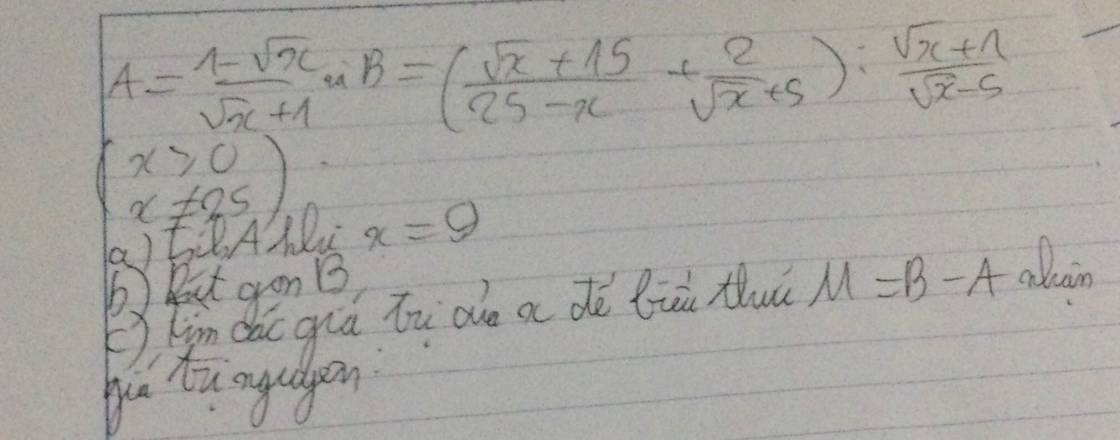 A = (1 - √x)/(√x + 1) và B = ((√x + 15)/(25 - x) + 2/(√x + 5)) : (√x + 1)/(√x - 5)
(x ≥ 0
x ≠ 25)
a) Tính A khi x = 9
b) Rút gọn B
c) Tìm các giá trị của x để biểu thức M = B - A nhận
giá trị nguyên.